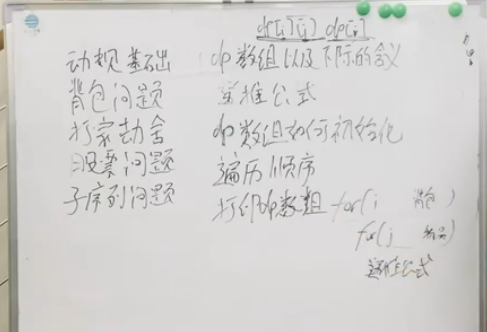 dp[i][j] dp[i]
动规基础 dp数组以及下标的含义
背包问题 递推公式
打家劫舍 dp数组如何初始化
股票问题 遍历顺序
子序列问题 打印dp数组 for(i 背包)
for(j 物品)
递推公式